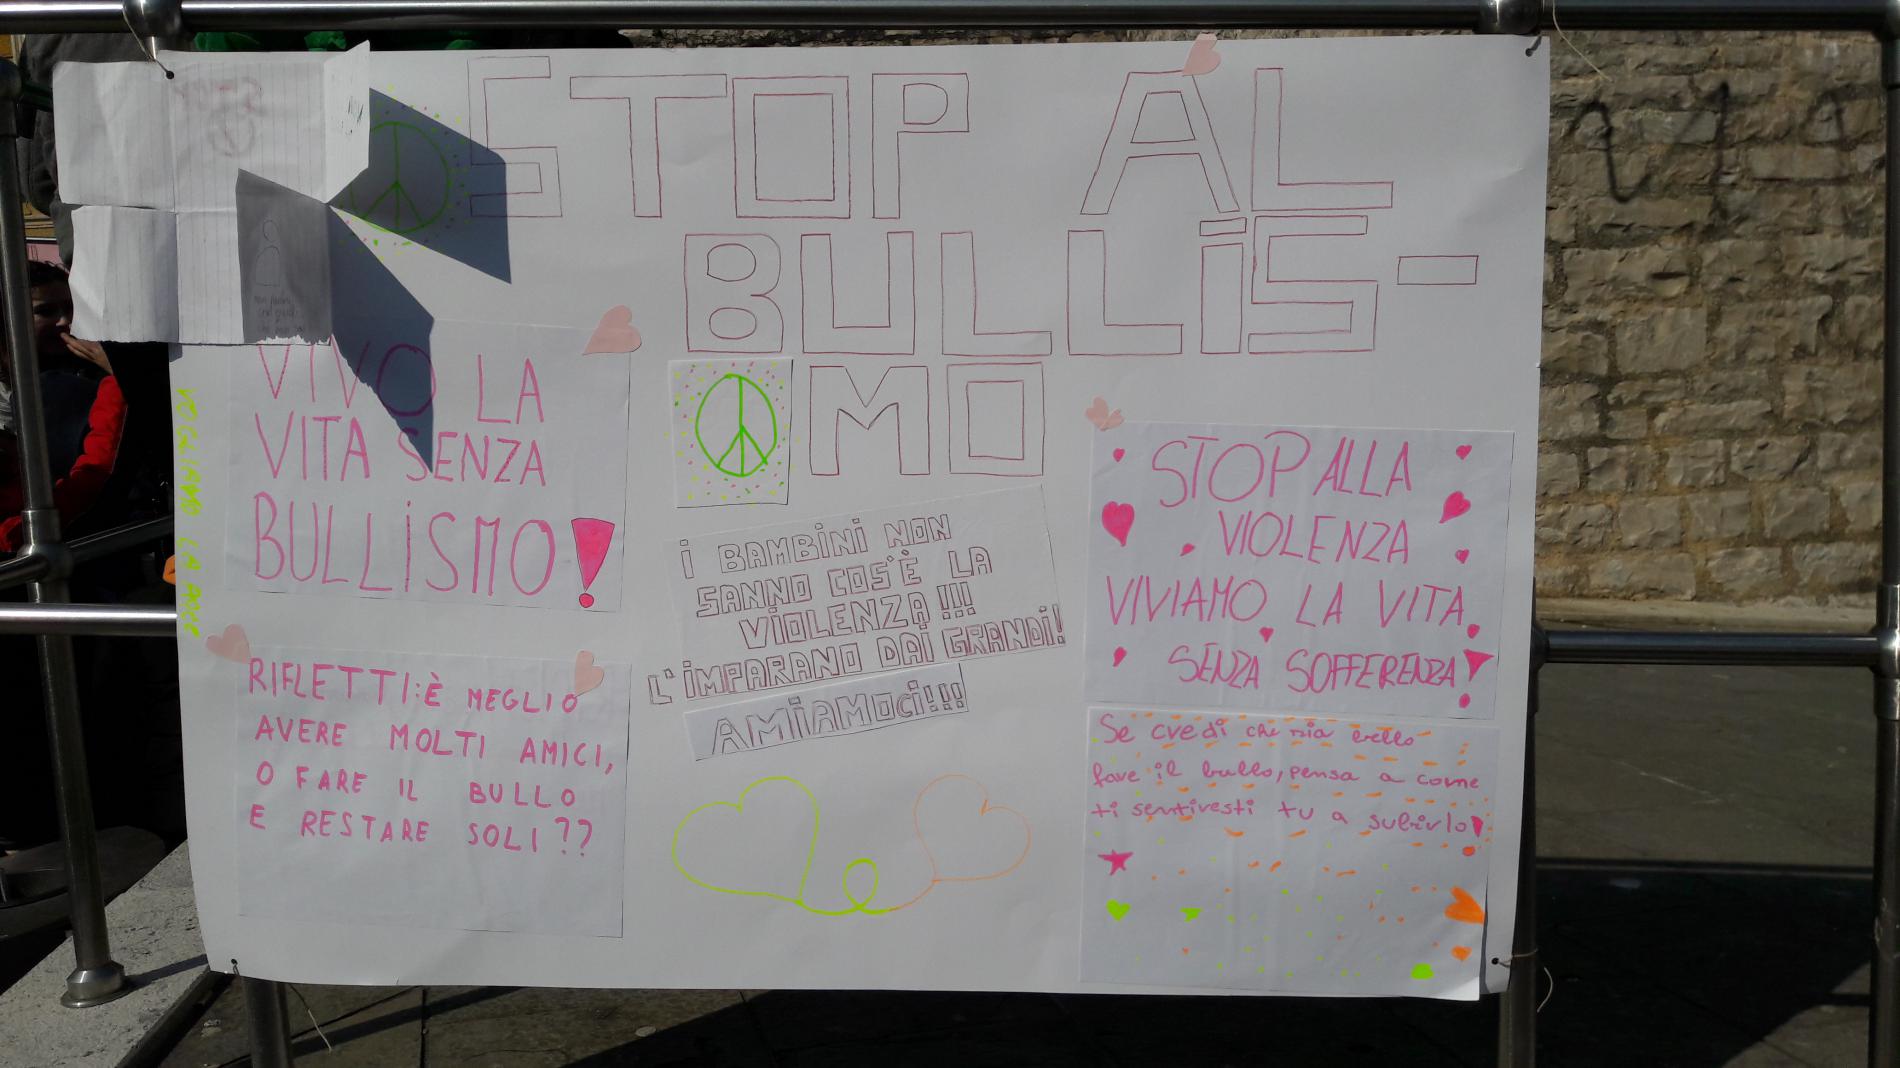 STOP AL
BULLiS-
MO
VIVO LA
VITA SENZA
BULLiSMO!
VOGLIAMO LA PACE
RIFLETTI: È MEGLIO
AVERE MOLTI AMICI,
O FARE IL BULLO
E RESTARE SOLI??
i BAMBiNi NON
SANNO COS'È LA
ViOLENZA!!!
L'iMPARANO DAi GRANDi!
AMiAMOCi!!!
STOP ALLA
VIOLENZA
VIVIAMO LA VITA
SENZA SOFFERENZA!
Se credi che sia bello
fare il bullo, pensa a come
ti sentiresti tu a subirlo!